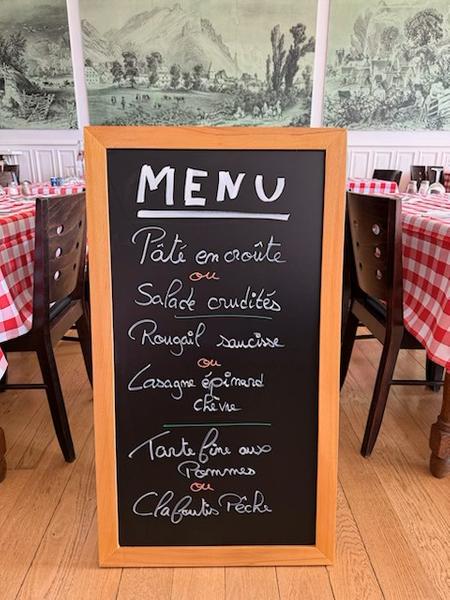 MENU
Pâté en croûte
ou
Salade crudités
Rougail saucisse
ou
Lasagne épinard
chèvre
Tarte fine aux
Pommes
ou
Clafoutis Pêche